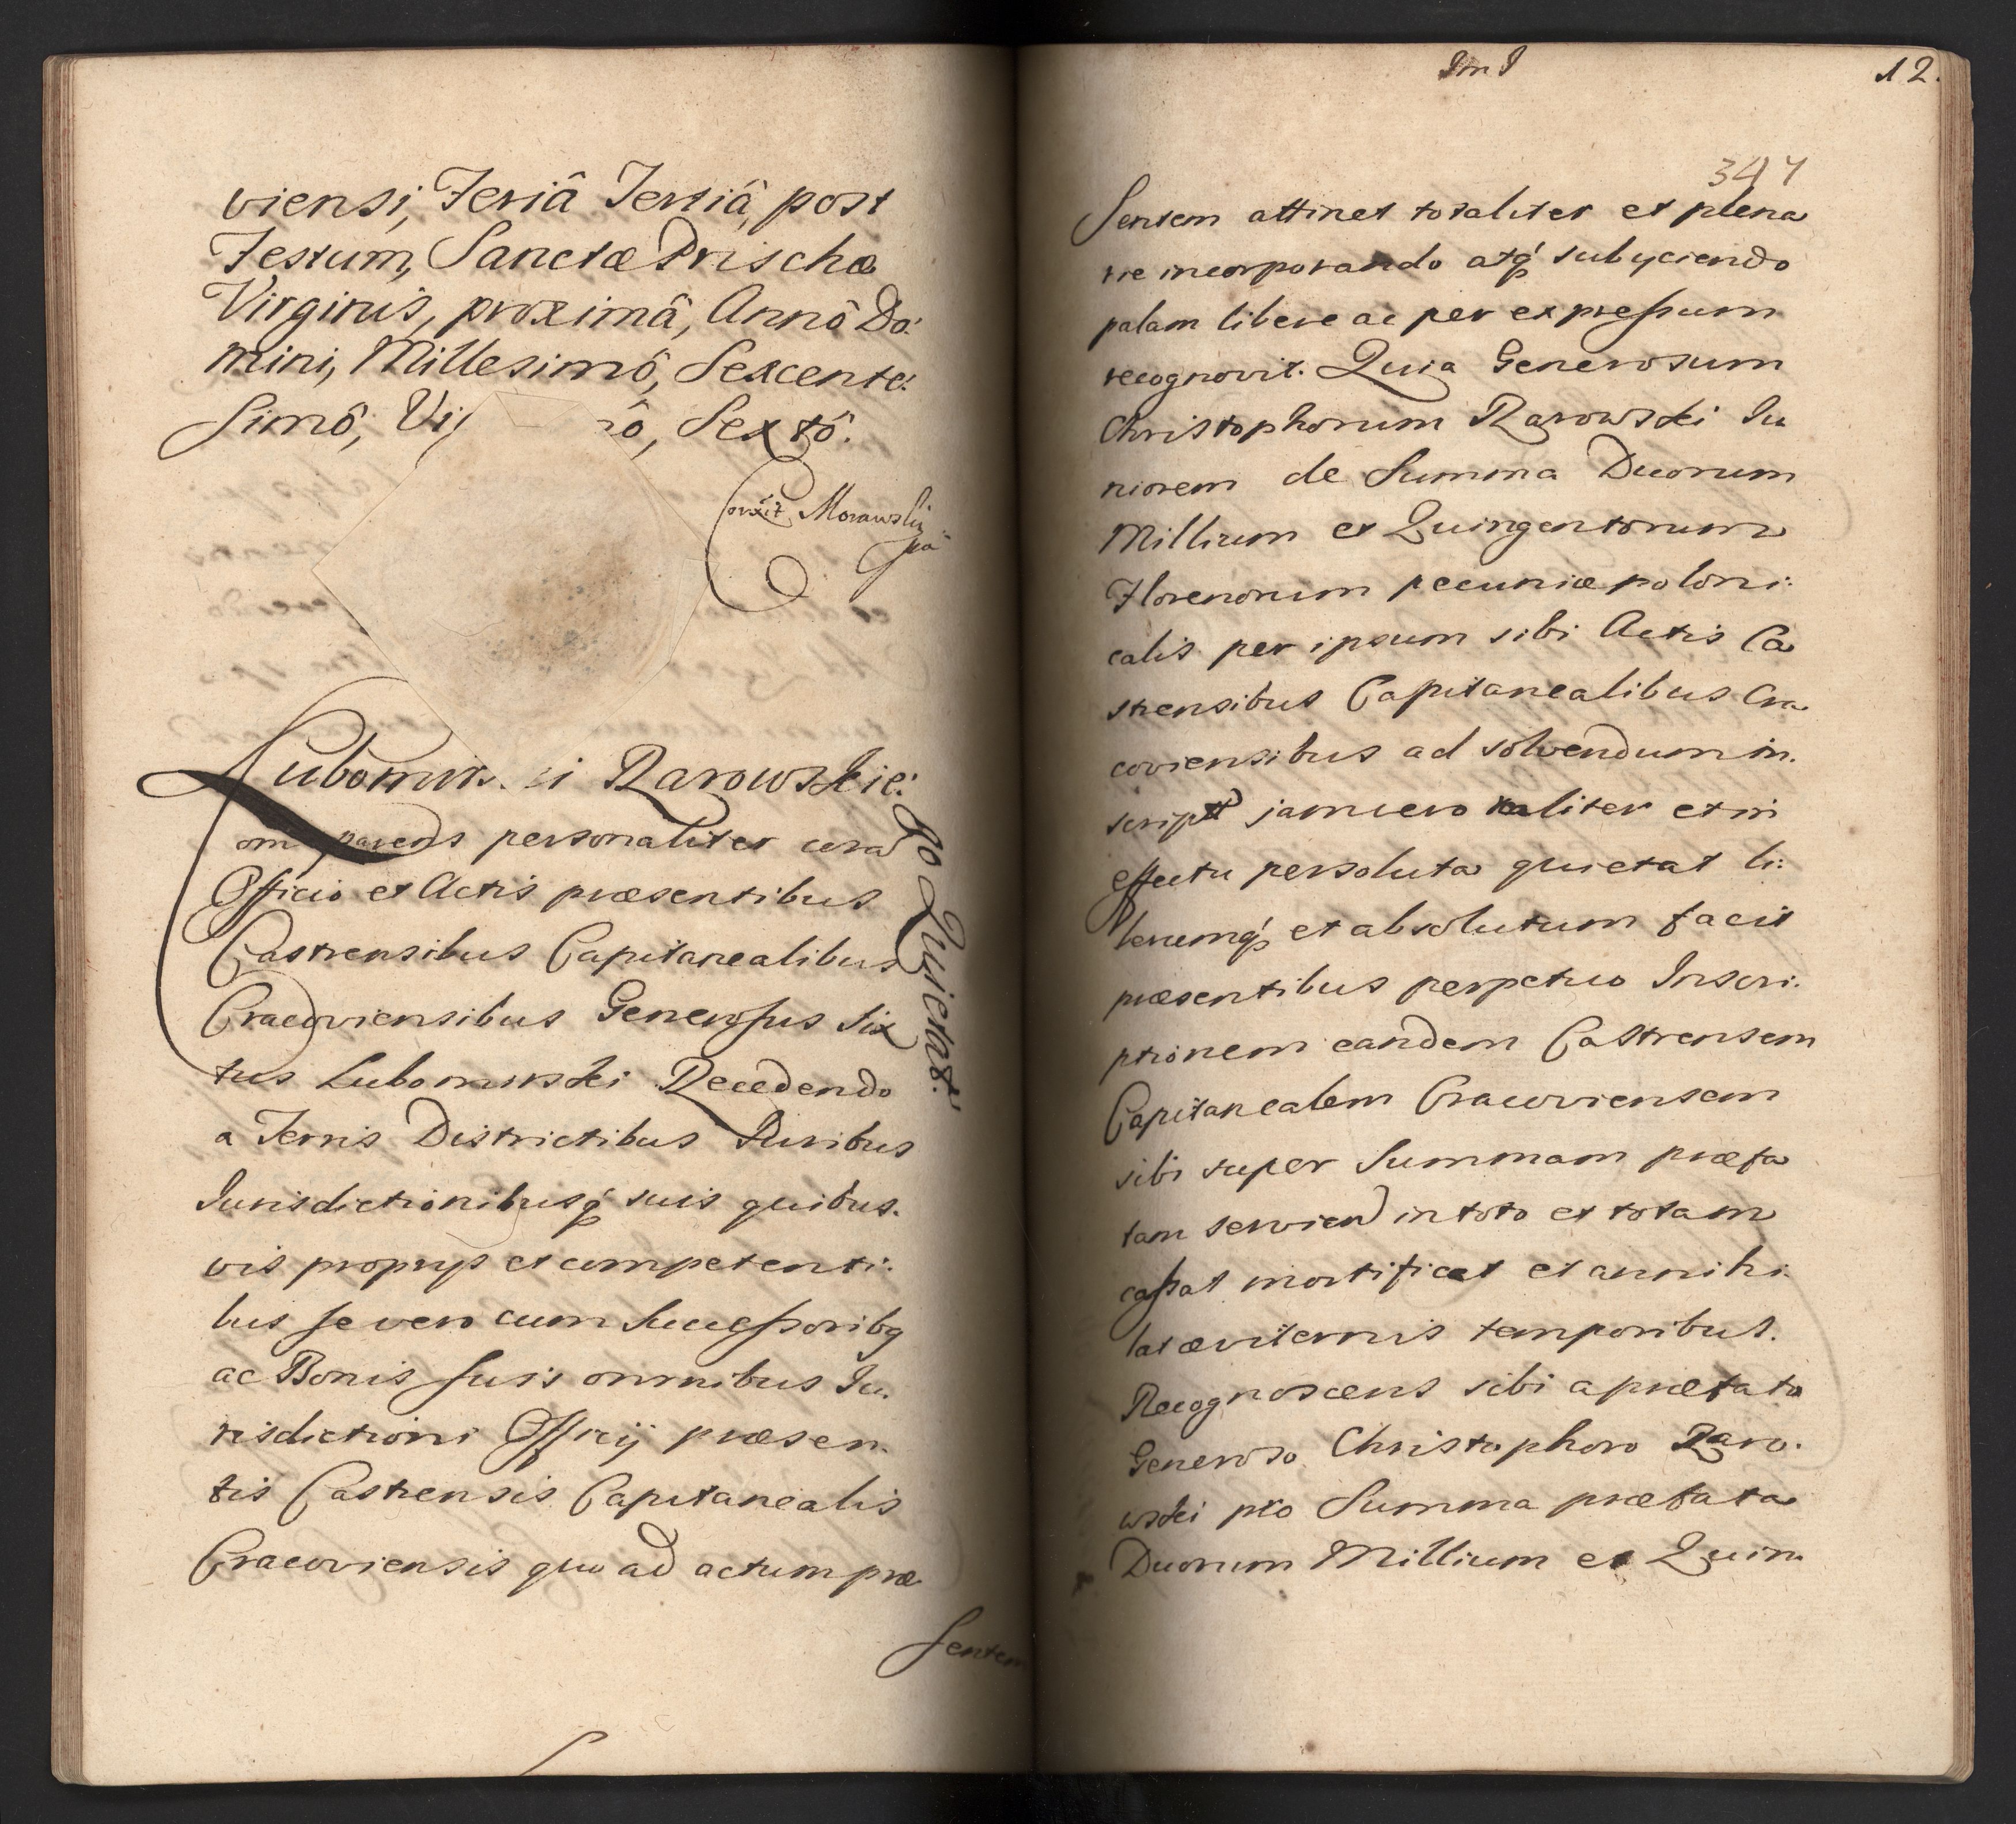 viensi, Feriâ Tertiâ, post
Festum, Sanctæ Prischæ
Virginis, proximâ, Annô Do:
mini, Millesimô, Sexcente:
simô, Vi ô, Sextô.
Morawski
Lubomirs i Rarowskie:
om parens personaliter coram
Officio et Actis præsentibus
Castrensibus Capitanealibus
Cracoviensibus Generosus Six
tus Lubomirski Recedendo
a Terris Districtibus Juribus
Jurisdictionibusq́ suis quibus.
vis proprijs et competenti.
bus se vero cum Successoribq
ac Bonis suis omnibus Ju.
risdictioni Officij præsen.
tis Castrensis Capitanealis
Cracoviensis quo ad actum præ
sentem
Quietat:
Im I
12.
347
Sentem attinet totaliter et plena
rie incorporando atq́ subyciendo
palam libere ac per expressum
recognovit. Quia Generosum
Christophorum Rarowski Ju
niorem de Summa Duorum
Millium et Quingentorum
Florenorum pecuniæ poloni:
calis per ipsum sibi Actis Ca
strensibus Capitanealibus Cra
coviensibus ad solvendum in.
script jamvero realiter et in
effectu persoluta quietat li:
berumq́ et absolutum facit
præsentibus perpetuo Inscri.
ptionem eandem Castrensem
Capitanealem Cracoviensem
sibi super Summam præfa
tam servien in toto et totam
cassat mortificat et annihi.
lat æviternis temporibus.
Recognoscens sibi a præfato
Generoso Christophoro Raro.
wski pro Summa præfata
Duorum Millium et Quin.